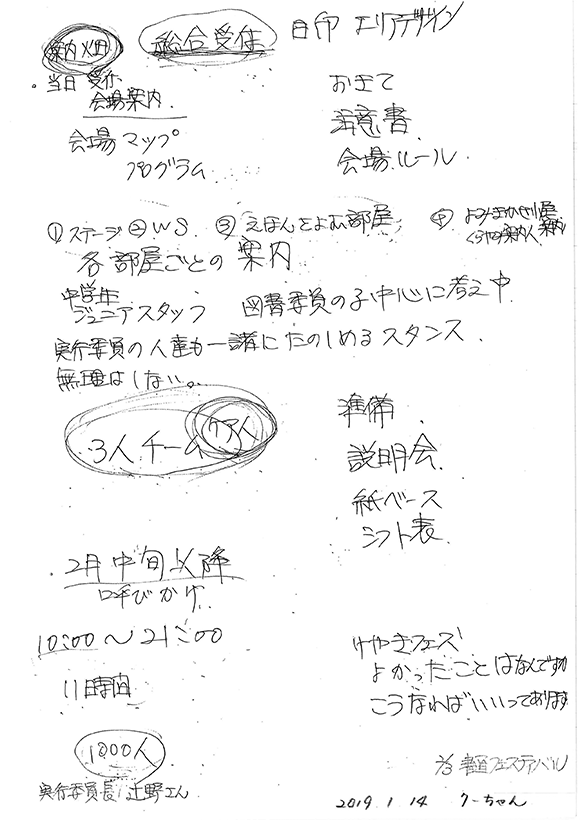 案内畑 総合受付 日印 エリアデザイン
当日 受付
会場案内
会場マップ
プログラム
おきて
注意書
会場ルール
① ステージ ② WS ③ えほんをよむ部屋 ④ よみきかせ小屋
くらやみ案内人 案内
各部屋ごとの案内
中学生
ジュニアスタッフ 図書委員の子中心に考え中
実行委員の人達も一諸にたのしめるスタンス.
無理はしない。
3人チーム
準備
説明会
紙ベース
シフト表
2月中旬以降
呼びかけ
10:00〜21:00
11時間
1800人
実行委員長 辻野さん
けやきフェズ
よかったことはなんですか
こうなればいいってあります
フェスティバル
2019.1.14 クーちゃん